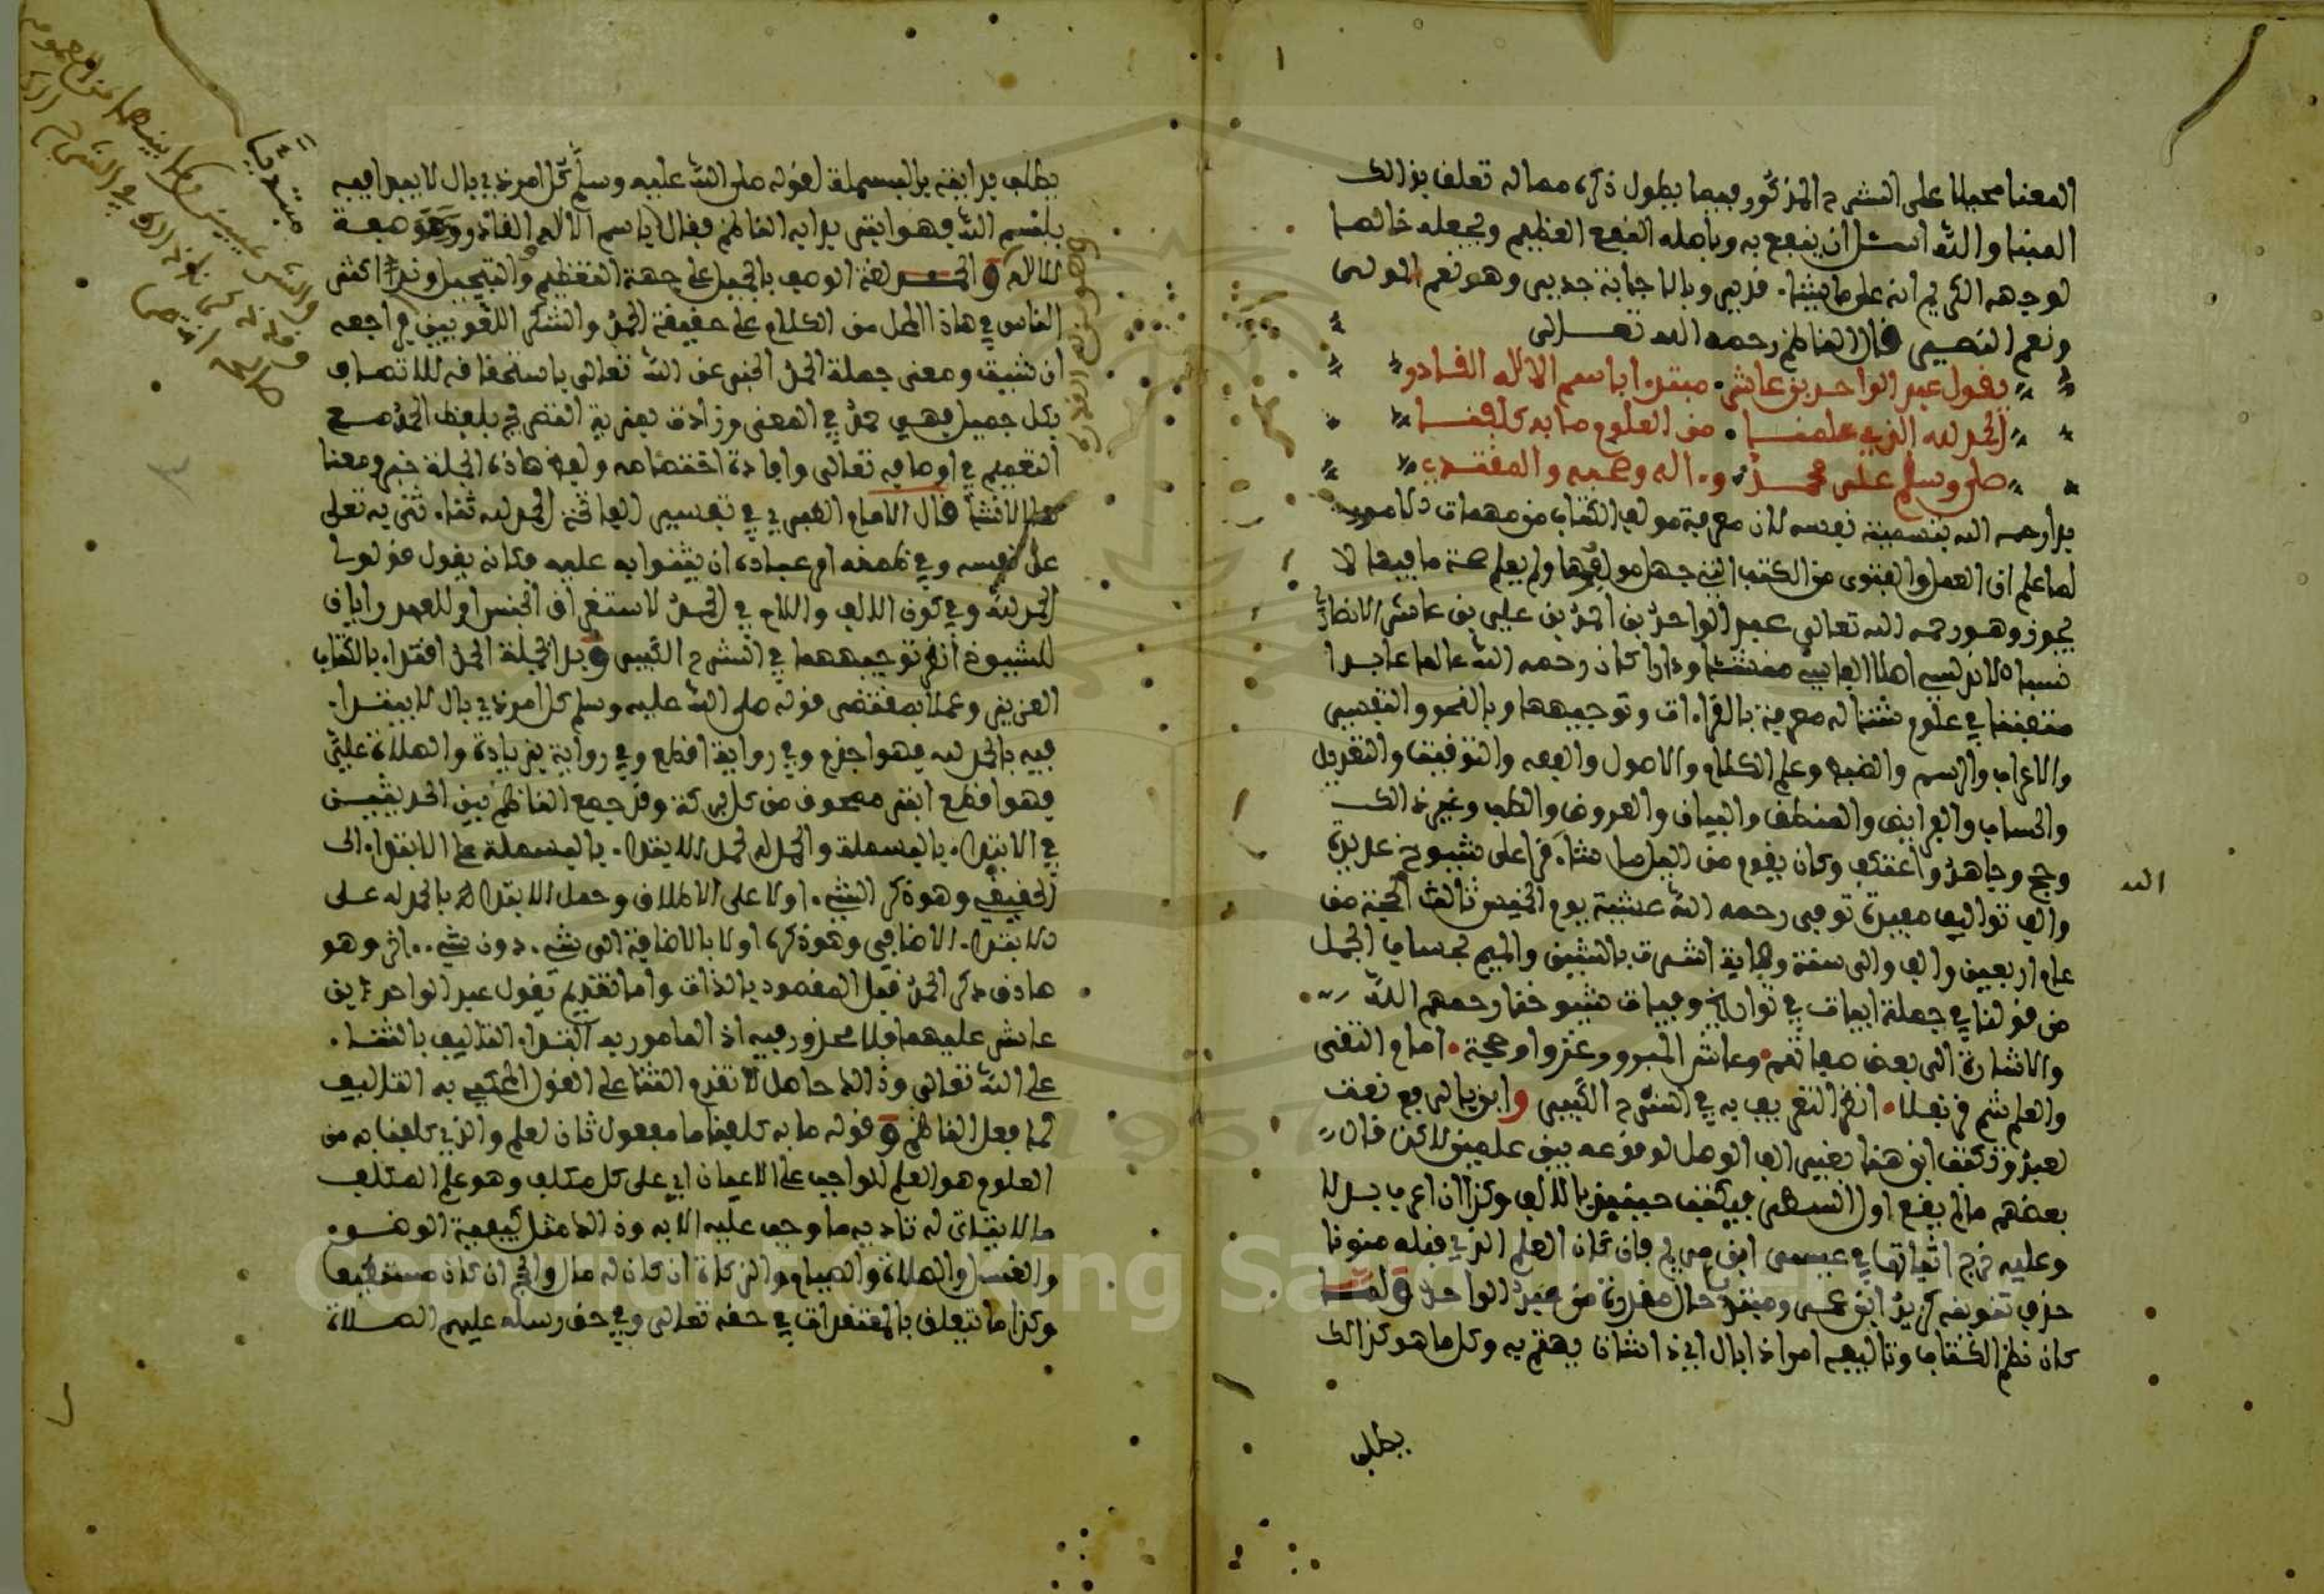 المعنا محيلا على الشرح المذكور فيما يطول ذكره مما له تعلق بذالك
المبنا والله اسئل ان ينفع به وباصله النفع العظيم ويجعله خالصا
لوجهه الكريم انه على ما يشاء قدير وبالاجابة جدير وهو نعم المولى
ونعم النصير قال الناظم رحمه الله تعالى
يقول عبد الواحد بن عاشر مبتدءا باسم الاله القادر
الحمد لله الذي علمنا من العلوم ما به كلفنا
صلى وسلم على محمد وءاله وصحبه والمقتدي
بدا رحمه الله بتسمية نفسه لان معرفة مولف الكتاب من مهمات الامور
لما علم ان العمل والفتوى من الكتب التي جهل مولفها ولم يعلم صحة ما فيها لا
يجوز وهو رحمه الله تعالى عبد الواحد بن احمد بن علي بن عاشر الانصاري
نسبا الاندلسي اصلا الفاسي منشئا ودارا كان رحمه الله عالما عابدا
متفننا في علوم شتى له معرفة بالقراءات وتوجيهها وبالنحو والتفسير
والاعراب والرسم والضبط وعلم الكلام والاصول والفقه والتوقيت والتعديل
والحساب والفرايض والمنطق والبيان والعروض والطب وغير ذالك
وحج وجاهد واعتكف وكان يقوم من الليل ما شاء قرا على شيوخ عديدة
الله
والف تواليف مفيدة توفي رحمه الله عشية يوم الخميس ثالث الحجة من
عام اربعين والف والى سنة وفاته اشرت بالشين والميم بحساب الجمل
من قولنا في جملة ابيات في تواريخ وفيات شيوخنا رحمهم الله
والاشارة الى بعض صفاتهم وعاشر المبرور غزوا وحجة امام التقى
والعلم شم قرنفلا انظر التعريف به في الشرح الكبير وابن بالرفع نعت
لعبد وتكتب ابن هنا بغير الف الوصل لوقوعه بين علمين لاكن قال
بعضهم ما لم يقع اول السطر فيكتب حينئذ بالالف وكذا ان اعرب بدلا
وعليه خرج اثباتها في عيسى ابن مريم فان كان العلم الذي قبله منونا
حذف تنوينه كزيد ابن عمر ومبتدئا حال مقدرة من عبد الواحد ولما
كان نظم الكتاب وتاليفه امرا ذا بال اي ذا شان يهتم به وكل ما هو كذالك
يطلب
يطلب بدايته بالبسملة لقوله صلى الله عليه وسلم كل امر ذي بال لا يبدا فيه
باسم الله فهو ابتر بدا به الناظم فقال باسم الالاه القادر وهو صفة
للالاه والحمد لغة الوصف بالجميل على جهة التعظيم والتبجيل وقد اكثر
الناس في هاذا المحل من الكلام على حقيقة الحمد والشكر اللغويين فراجعه
ان شيت ومعنى جملة الحمد الخبر عن الله تعالى باستحقاقه للاتصاف
بكل جميل فهي حمد في المعنى وزادت بمزية التصريح بلفظ الحمد مع
التعميم في اوصافه تعالى وافادة اختصاصه ولفظ هاذه الجملة خبر ومعنا
ها الانشا قال الامام الطبري في تفسير الفاتحة الحمد لله ثناء اثنى به تعلى
على نفسه وفي ضمنه امر عباده ان يثنوا به عليه فكانه يقول قولوا
الحمد لله وفي كون الالف واللام في الحمد لاستغراق الجنس او للعهد رايان
للشيوخ انظر توجيههما في الشرح الكبير وبدا بجملة الحمد اقتداء بالكتاب
العزيز وعملا بمقتضى قوله صلى الله عليه وسلم كل امر ذي بال لا يبتدا
فيه بالحمد لله فهو اجذم وفي رواية اقطع وفي رواية بزيادة والصلاة علي
فهو اقطع ابتر ممحوق من كل بركة وقد جمع الناظم بين الحديثين
في الابتداء بالبسملة والحمد له بحمل الابتداء بالبسملة على الابتداء
الحقيقي وهو ذكر الشيء اولا على الاطلاق وحمل الابتداء بالحمد له على
الابتداء الاضافي وهو ذكره اولا بالاضافة الى شيء دون شيء اخر وهو
صادق بذكر الحمد قبل المقصود بالذات واما تقديم يقول عبد الواحد بن
عاشر عليهما فلا محذور فيه اذ المامور به ابتداء التاليف بالثناء
على الله تعالى وذالك حاصل لا تقدم الثنا على القول المحكي به التاليف
كما فعل الناظم وقوله ما به كلفنا ما مفعول ثان لعلم والذي كلفنا به من
العلوم هو العلم الواجب على الاعيان اي على كل مكلف وهو علم المكلف
ما لا يتاتى له تادية ما وجب عليه الا به وذالك مثل كيفية الوضوء
والغسل والصلاة والصيام والزكاة ان كان له مال والحج ان كان مستطيعا
وكذا ما يتعلق بالمعتقدات في حقه تعالى وفي حق رسله عليهم الصلاة
Copyright © King Saud University
1957